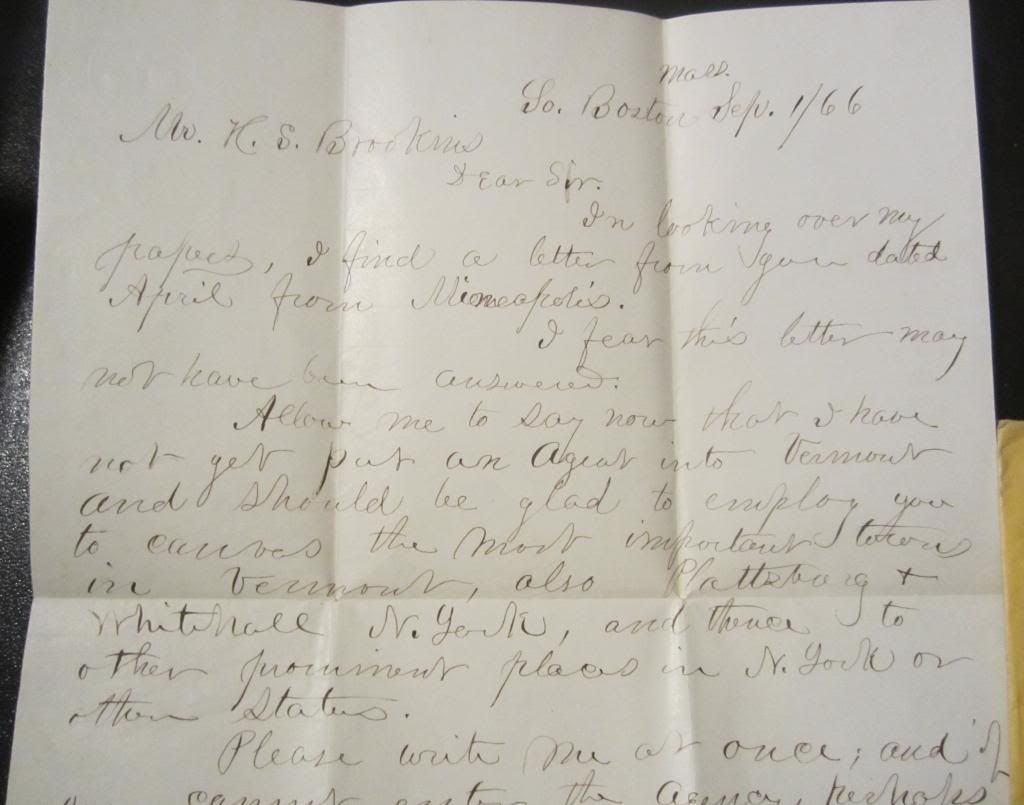 Mass.
So. Boston Sep. 1/66
Mr. H. S. Brookins
Dear Sir.
In looking over my
papers, I find a letter from you dated
April from Mineapolis.
I fear this letter may
not have been answered.
Allow me to say now that I have
not yet put an Agent into Vermont
and should be glad to employ you
to canvas the most important towns
in Vermont, also Plattsburg +
Whitehall N. York, and thence to
other prominent places in N. York or
other States.
Please write me at once; and if
cannot enter the Agency, perhaps